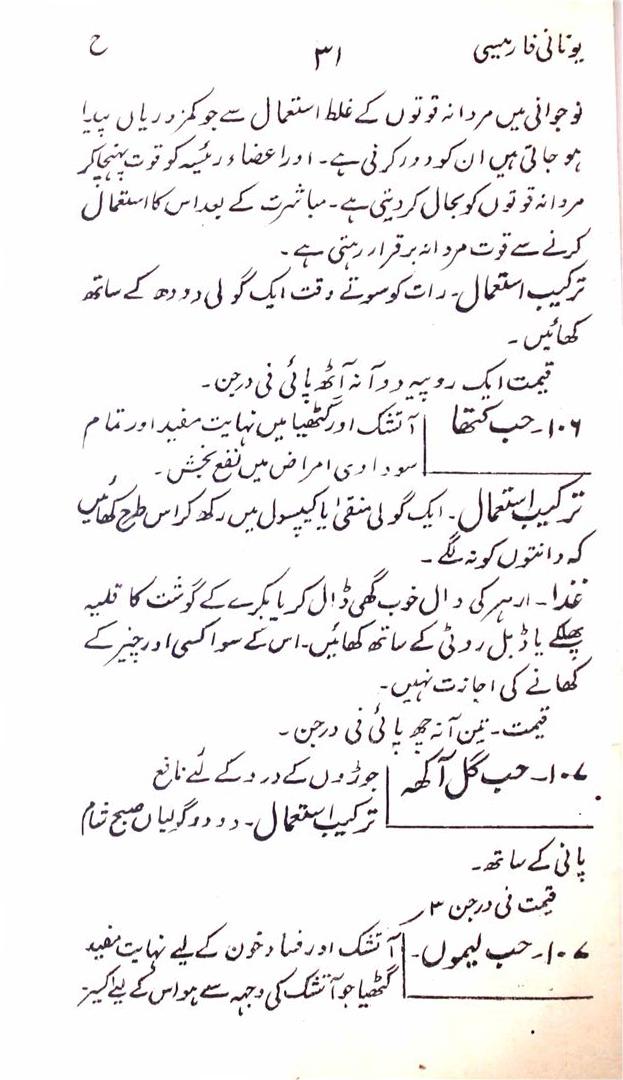 یونانی فارمیسی ۳۱ ح
نوجوانی میں مردانہ قوتوں کے غلط استعمال سے جو کمزوریاں پیدا
ہو جاتی ہیں ان کو دور کرتی ہے۔ اور اعضاء رئیسہ کو قوت پہنچا کر
مردانہ قوتوں کو بحال کر دیتی ہے۔ مباشرت کے بعد اس کا استعمال
کرنے سے قوت مردانہ برقرار رہتی ہے۔
ترکیب استعمال۔ رات کو سوتے وقت ایک گولی دودھ کے ساتھ
کھائیں۔
قیمت ایک روپیہ دو آنہ آٹھ پائی فی درجن۔
۱۰۶۔ حب کتھا آتشک اور گٹھیا میں نہایت مفید اور تمام
سوداوی امراض میں نفع بخش۔
ترکیب استعمال۔ ایک گولی منقیٰ یا کیپسول میں رکھ کر اس طرح کھائیں
کہ دانتوں کو نہ لگے۔
غذا۔ ارہر کی دال خوب گھی ڈال کر یا بکرے کے گوشت کا قلیہ
پھلکے یا ڈبل روٹی کے ساتھ کھائیں۔ اس کے سوا کسی اور چیز کے
کھانے کی اجازت نہیں۔
قیمت۔ تین آنہ چھ پائی فی درجن۔
۱۰۷۔ حب گل آکھہ جوڑوں کے درد کے لئے نافع
ترکیب استعمال۔ دو دو گولیاں صبح شام
پانی کے ساتھ۔
قیمت فی درجن ۳ر
۱۰۷۔ حب لیموں۔ آتشک اور فساد خون کے لیے نہایت مفید
گٹھیا جو آتشک کی وجہہ سے ہو اس کے لیئے اکسیر۔